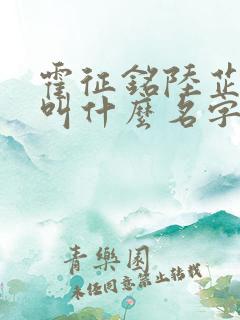 霍征銘陸芷
叫什麼名字
青樂園
未经同意禁止转载